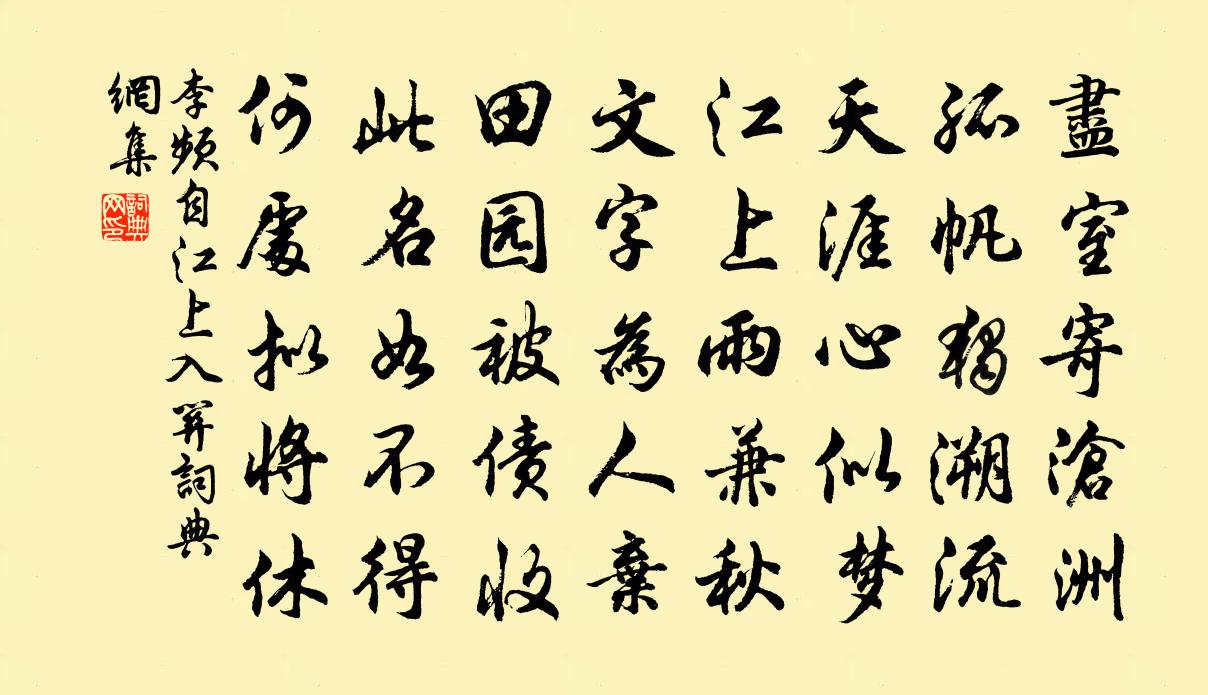 盡室寄滄洲
孤帆獨溯流
天涯心似梦
江上雨兼秋
文字為人棄
田园被债收
此名如不得
何處拟將休
李頻自江上入關詞典
網集
詞典
网印